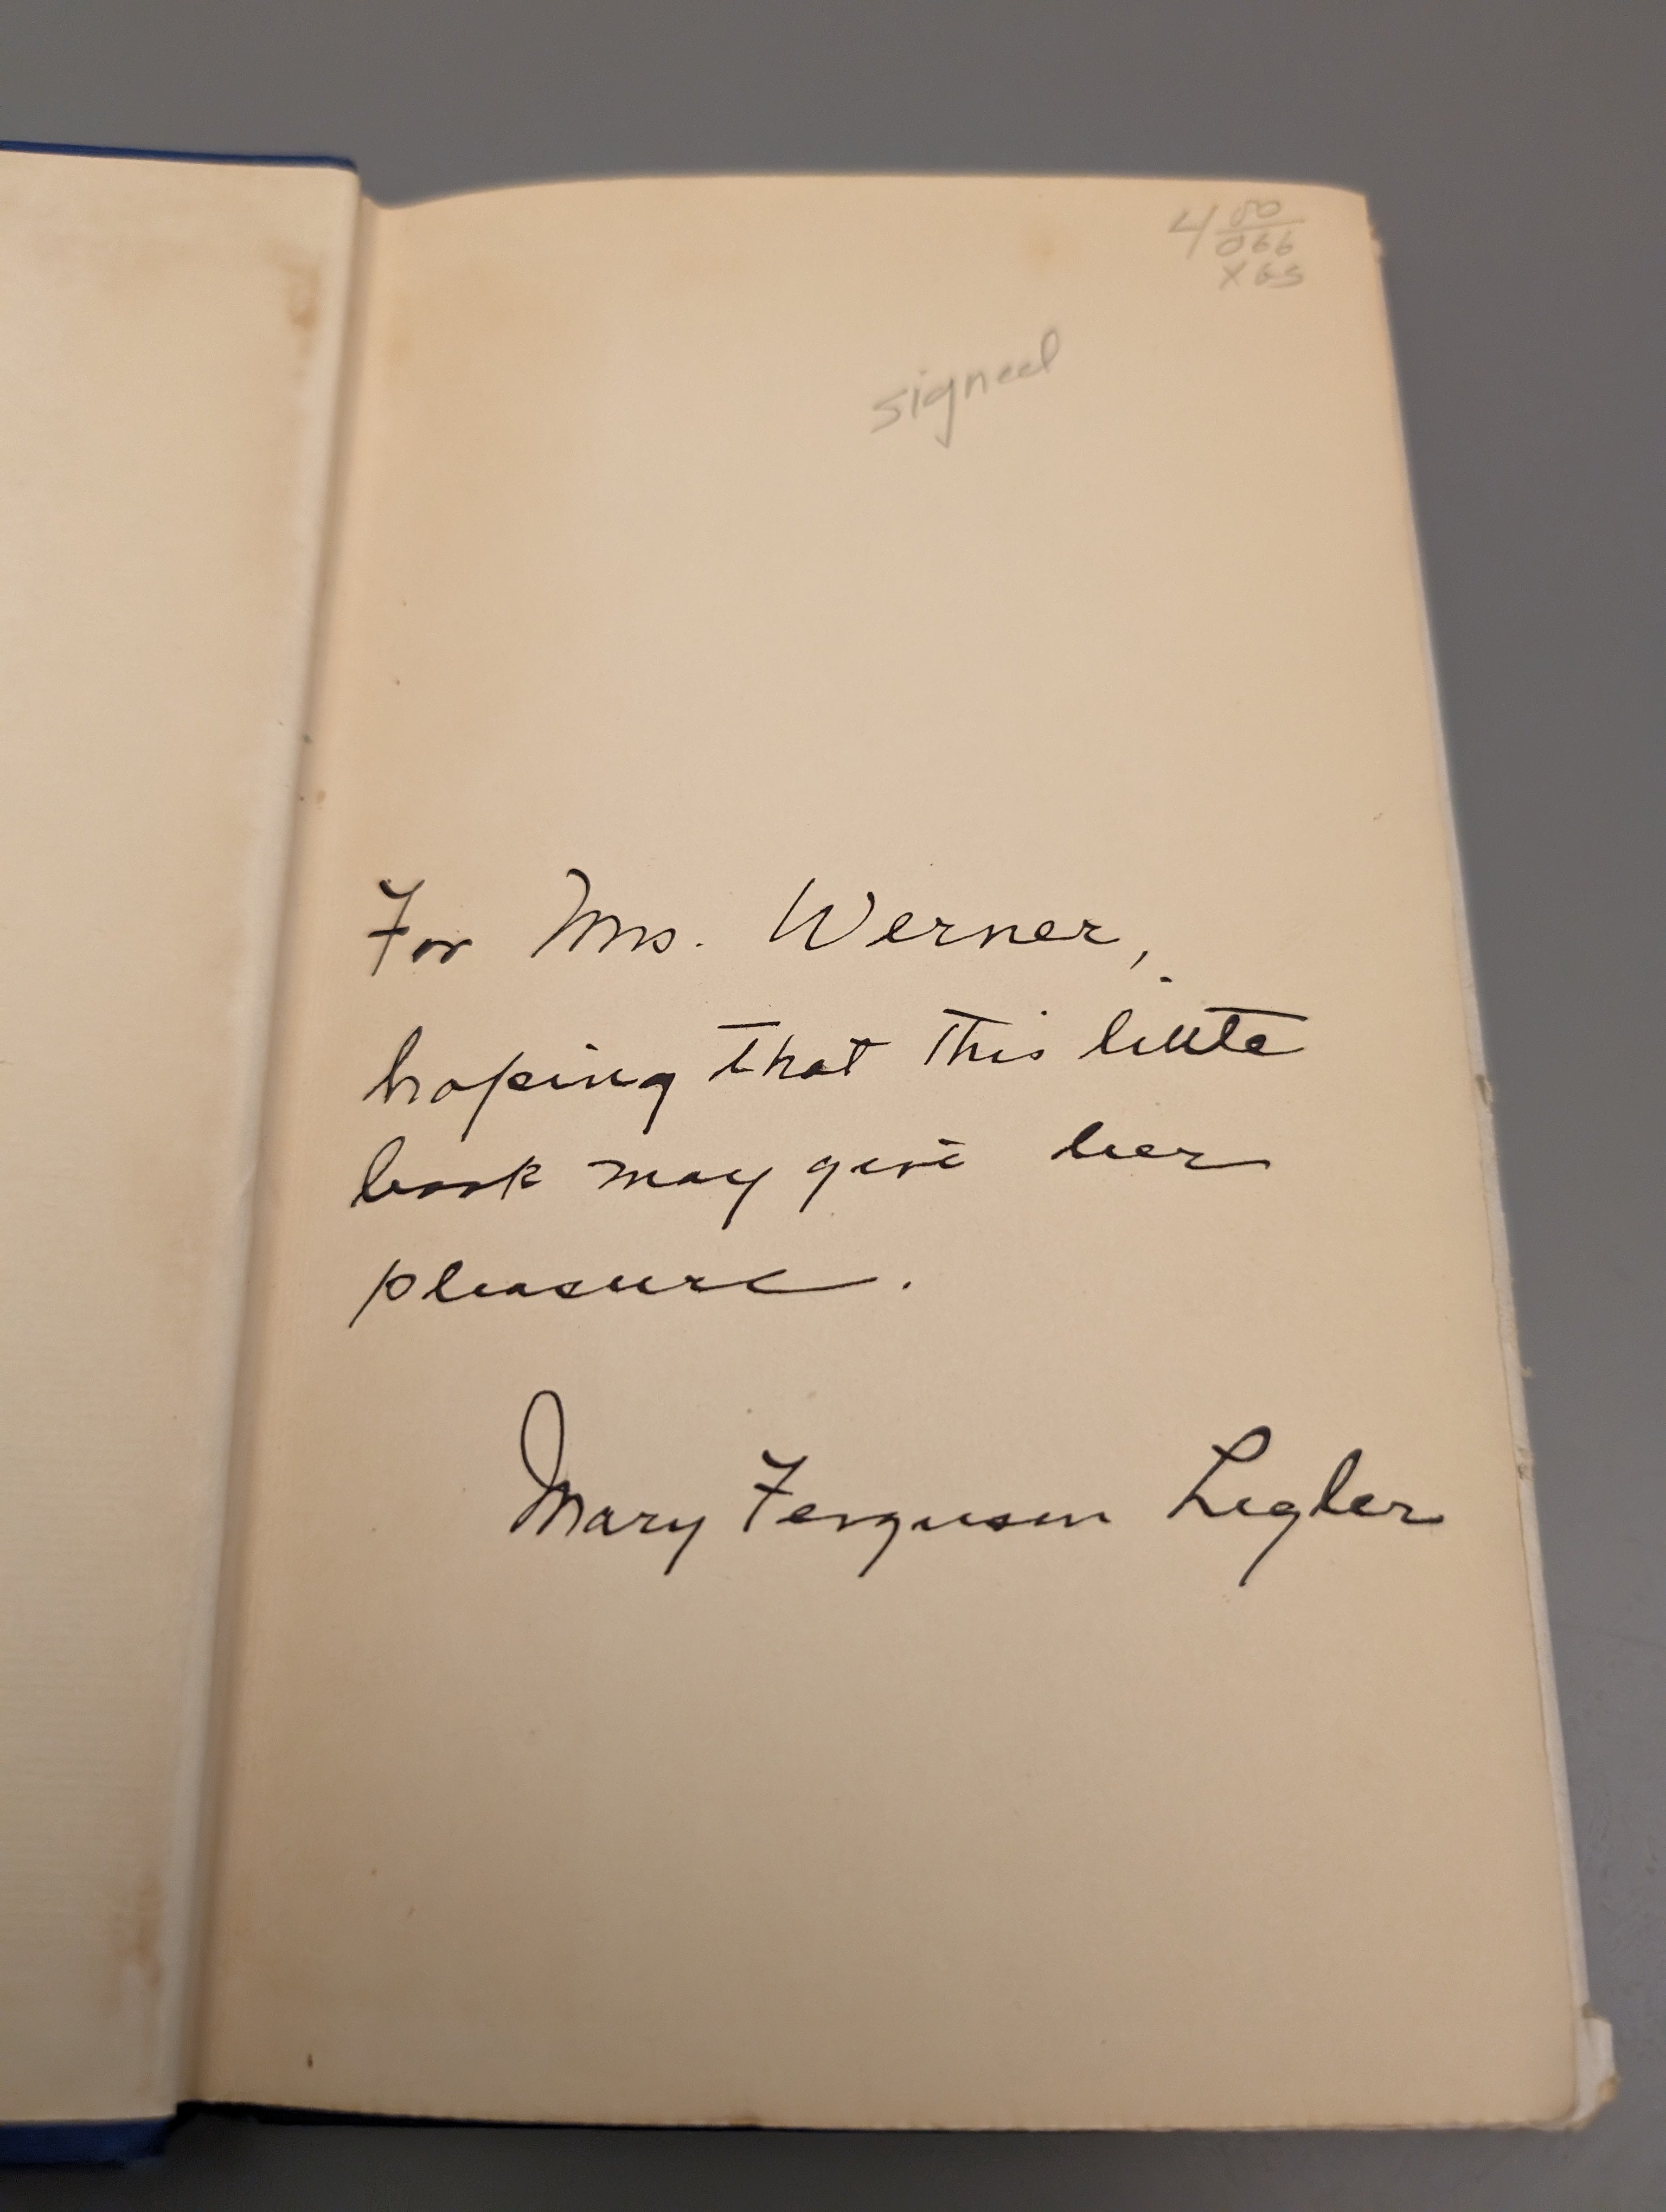 4 00
066
X65
signed
For Mrs. Werner,
hoping that this little
book may give her
pleasure.
Mary Ferguson Legler